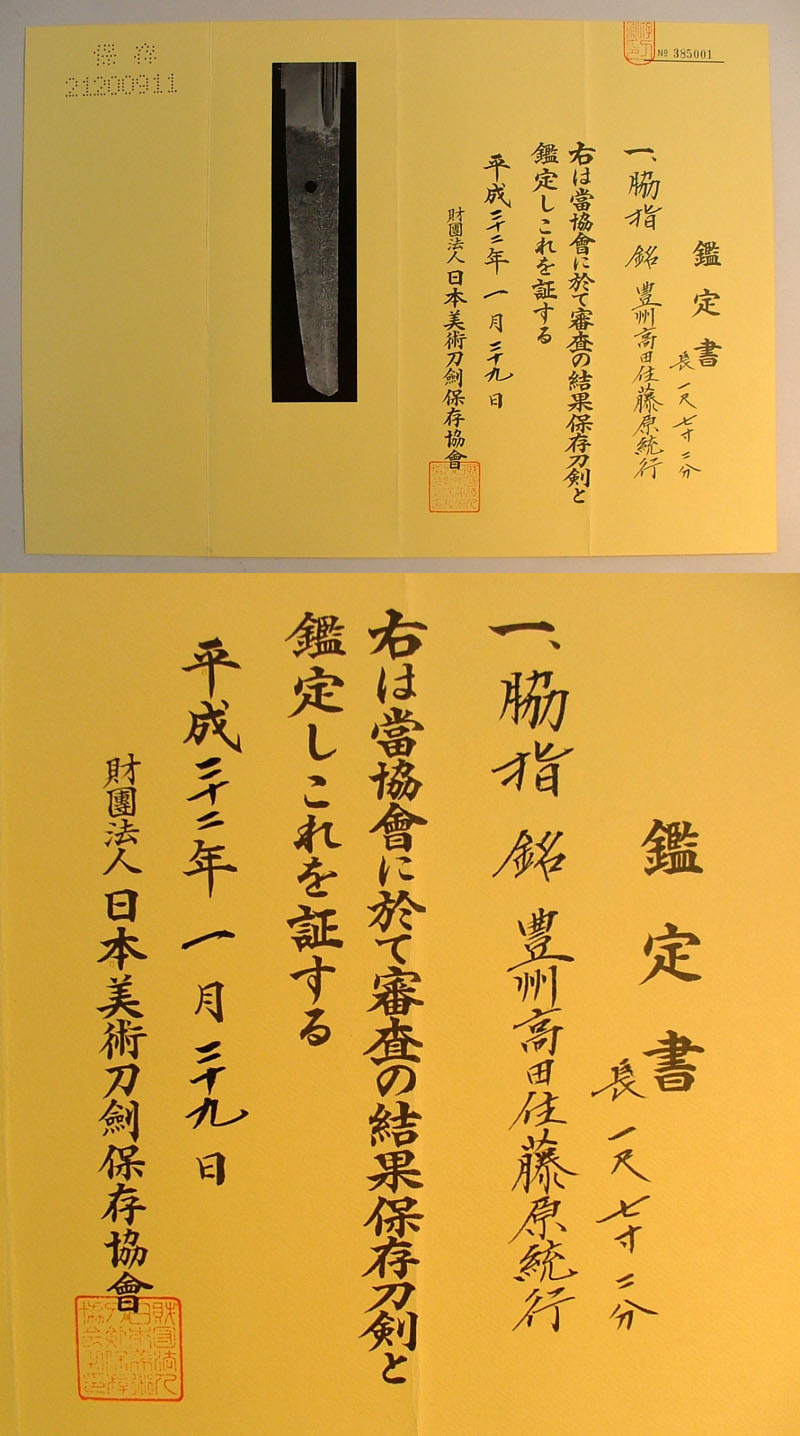 保存
21200911
№ 385001
鑑定書
長 一尺七寸二分
一、脇指 銘 豊州高田住藤原統行
右は當協會に於て審査の結果保存刀剣と
鑑定しこれを証する
平成二十二年 一月 二十九日
財團法人 日本美術刀劍保存協會
鑑定書
長 一尺七寸二分
一、脇指 銘 豊州高田住藤原統行
右は當協會に於て審査の結果保存刀剣と
鑑定しこれを証する
平成二十二年 一月 二十九日
財團法人 日本美術刀劍保存協會